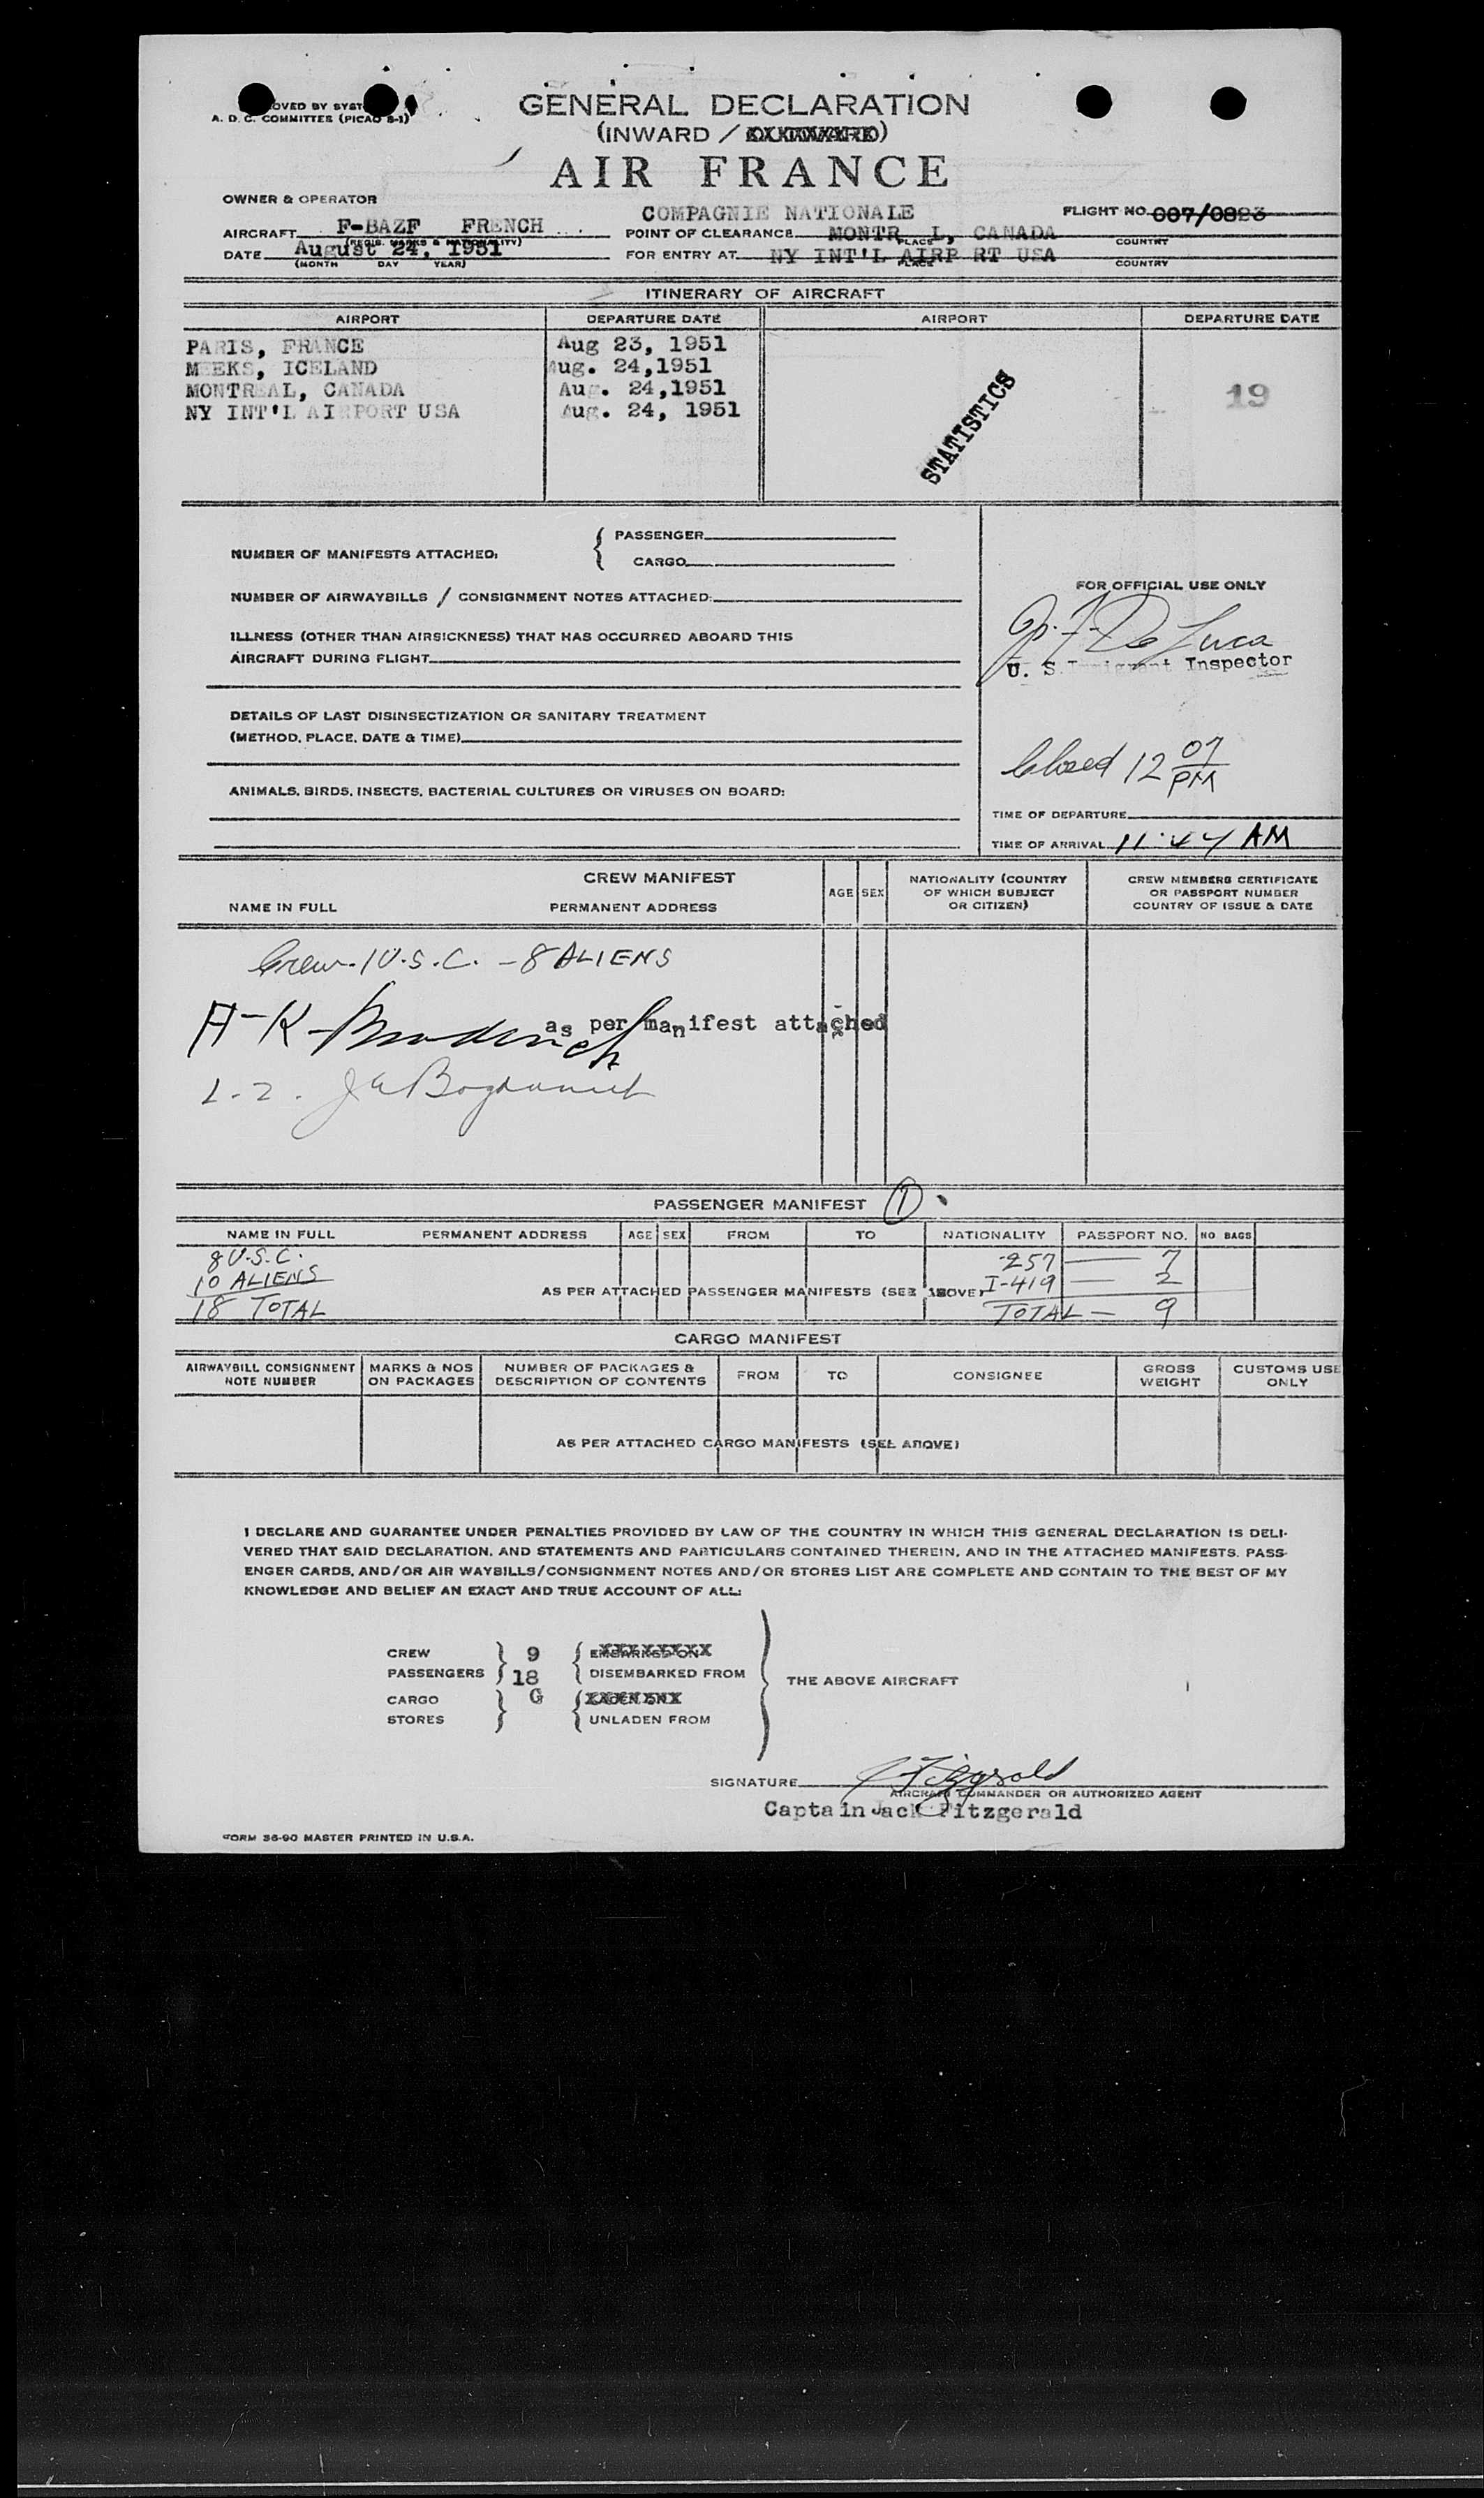 GENERAL DECLARATION
A. D. C. COMMITTEE (PICAO 8-1)
(INWARD /
AIR FRANCE
OWNER & OPERATOR
COMPAGNIE NATIONALE
FLIGHT NO. 007/0823
AIRCRAFT F-BAZF FRENCH
(REGIS. MARKS & NATIONALITY)
POINT OF CLEARANCE MONTR L, CANADA
PLACE COUNTRY
DATE August 24, 1951
(MONTH DAY YEAR)
FOR ENTRY AT NY INT'L AIRP RT USA
PLACE COUNTRY
ITINERARY OF AIRCRAFT
AIRPORT DEPARTURE DATE AIRPORT DEPARTURE DATE
PARIS, FRANCE Aug 23, 1951
MEEKS, ICELAND Aug. 24,1951
MONTREAL, CANADA Aug. 24,1951
NY INT'L AIRPORT USA Aug. 24, 1951
STATISTICS
19
NUMBER OF MANIFESTS ATTACHED: PASSENGER
CARGO
NUMBER OF AIRWAYBILLS / CONSIGNMENT NOTES ATTACHED:
ILLNESS (OTHER THAN AIRSICKNESS) THAT HAS OCCURRED ABOARD THIS
AIRCRAFT DURING FLIGHT
DETAILS OF LAST DISINSECTIZATION OR SANITARY TREATMENT
(METHOD, PLACE, DATE & TIME)
ANIMALS, BIRDS, INSECTS, BACTERIAL CULTURES OR VIRUSES ON BOARD:
FOR OFFICIAL USE ONLY
De Luca
U. S. Immigrant Inspector
Closed 12 07 PM
TIME OF DEPARTURE
TIME OF ARRIVAL 11:47 AM
CREW MANIFEST
NAME IN FULL PERMANENT ADDRESS
AGE SEX
NATIONALITY (COUNTRY
OF WHICH SUBJECT
OR CITIZEN)
CREW MEMBERS CERTIFICATE
OR PASSPORT NUMBER
COUNTRY OF ISSUE & DATE
Crew - 1 U.S.C. - 8 ALIENS
as per manifest attached
PASSENGER MANIFEST 1
NAME IN FULL PERMANENT ADDRESS AGE SEX FROM TO NATIONALITY PASSPORT NO. NO BAGS
8 U.S.C. -257 — 7
10 ALIENS I-419 — 2
AS PER ATTACHED PASSENGER MANIFESTS (SEE ABOVE)
18 TOTAL TOTAL — 9
CARGO MANIFEST
AIRWAYBILL CONSIGNMENT
NOTE NUMBER
MARKS & NOS
ON PACKAGES
NUMBER OF PACKAGES &
DESCRIPTION OF CONTENTS
FROM TO CONSIGNEE
GROSS
WEIGHT
CUSTOMS USE
ONLY
AS PER ATTACHED CARGO MANIFESTS (SEE ABOVE)
I DECLARE AND GUARANTEE UNDER PENALTIES PROVIDED BY LAW OF THE COUNTRY IN WHICH THIS GENERAL DECLARATION IS DELI-
VERED THAT SAID DECLARATION, AND STATEMENTS AND PARTICULARS CONTAINED THEREIN, AND IN THE ATTACHED MANIFESTS, PASS-
ENGER CARDS, AND/OR AIR WAYBILLS/CONSIGNMENT NOTES AND/OR STORES LIST ARE COMPLETE AND CONTAIN TO THE BEST OF MY
KNOWLEDGE AND BELIEF AN EXACT AND TRUE ACCOUNT OF ALL:
CREW 9 EMBARKED ON
PASSENGERS 18 DISEMBARKED FROM
THE ABOVE AIRCRAFT
CARGO G LADEN ON
STORES UNLADEN FROM
SIGNATURE Fitzgerald
AIRCRAFT COMMANDER OR AUTHORIZED AGENT
Captain Jack Fitzgerald
FORM 36-90 MASTER PRINTED IN U.S.A.